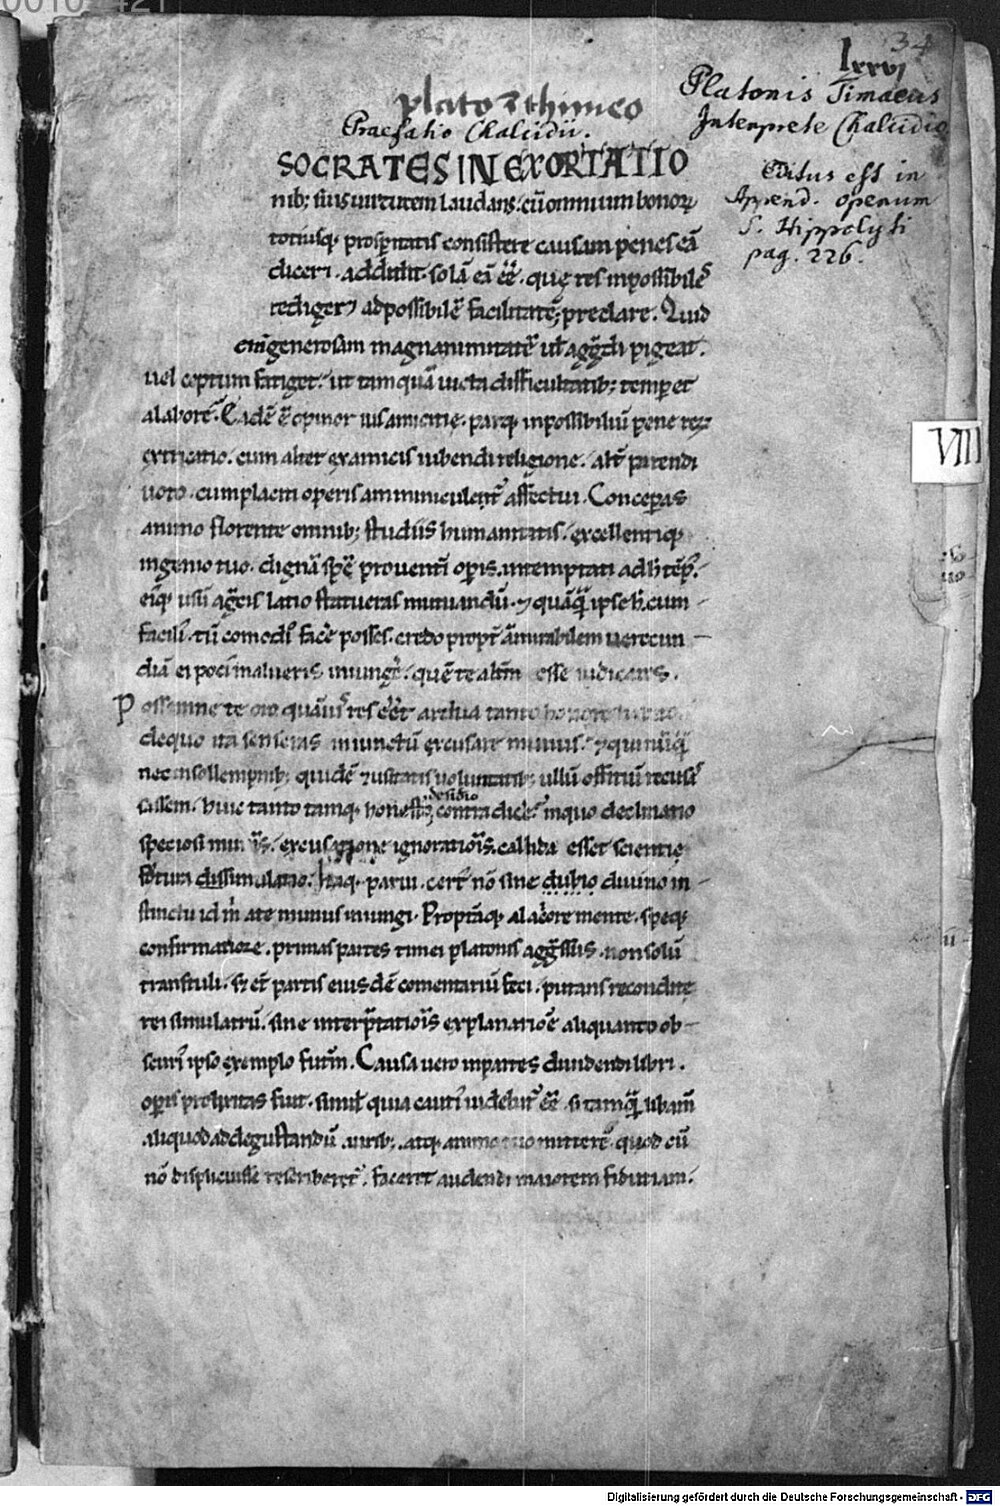 34
lxxvi
plato & thimeo
Platonis Timaeus
Interprete Chalcidio
Praefatio Chalcidii.
Editus est in
Append. operum
S. Hippolyti
pag. 226.
SOCRATES IN EXORTATIO
nib; suis uirtutem laudans. cũ omnium bonoꝝ
totiusq; prosp̱itatis consistere causam penes eã
diceri. addidit. solã eã eẽ. quę res inpossibilẽ
redigerꝫ ad possibilẽ facilitatẽ; preclare. Quid
eni generosam magnanimitatẽ uł aggredi pigeat.
uel ceptum fatiget. ut tam quã uicta difficultatib; temperet
a labore. Eadẽ ẽ opinor uis amicitię. parq; inpossibiliũ pene reꝝ
extricatio. cum alter ex amicis iubendi religione. alt̃ parendi
uoto. cumplaciti operis amminiculent̃ affectui. Conceperas
animo florente omnib; studiis humanitatis. excellentiq;
ingenio tuo. dignã spẽ prouenti opis. intemptati ad h tẽp̃.
eiq; usũ a gręcis latio statueras mutuandũ. ⁊ quãquã ipse h. cum
facili. tũ comodi facẽ posses. credo propt̃ ãmirabilem uerecun
diã ei poci malueris iniungi. quẽ te alt̃m esse iudicares.
Possemne te oro quãuis res eẽt ardua tanto honore habito
de quo ita senseras iniunctũ excusare munus. ⁊ qui nũquã
nec in sollempnib; quidẽ ⁊ usitatis uoluntatib; ullũ officiũ recusas
desidio
sem. huic tanto tamq; honesto contradicẽ. in quo declinatio
speciosi muneris. excusatione ignorationis. callida esset scientię
futura dissimulatio. Itaq; parui. certꝰ nõ sine dubio diuino in
stinctu id m ate munus iniungi. Proptãq; alacriore mente. speq;
confirmatiore. primas partes timei platonis aggressus. non solũ
transtuli. s; et partis eiusdẽ comentariũ feci. putans reconditę
rei simulatrũ. sine interp̃tationis explanatiõe aliquanto ob
scuri ipso exemplo futm̃. Causa uero in partes diuidendi libri.
opis prolixitas fuit. simul quia cauti uidebat̃ eẽ. si tamquã libam̃
aliquod ad degustandũ. aurib; atq; animo tuo mitterẽ. quod cũ
nõ displicuisse rescriberet̃. faceret audendi maiorem fiduciam.
VIII
Digitalisierung gefördert durch die Deutsche Forschungsgemeinschaft - DFG